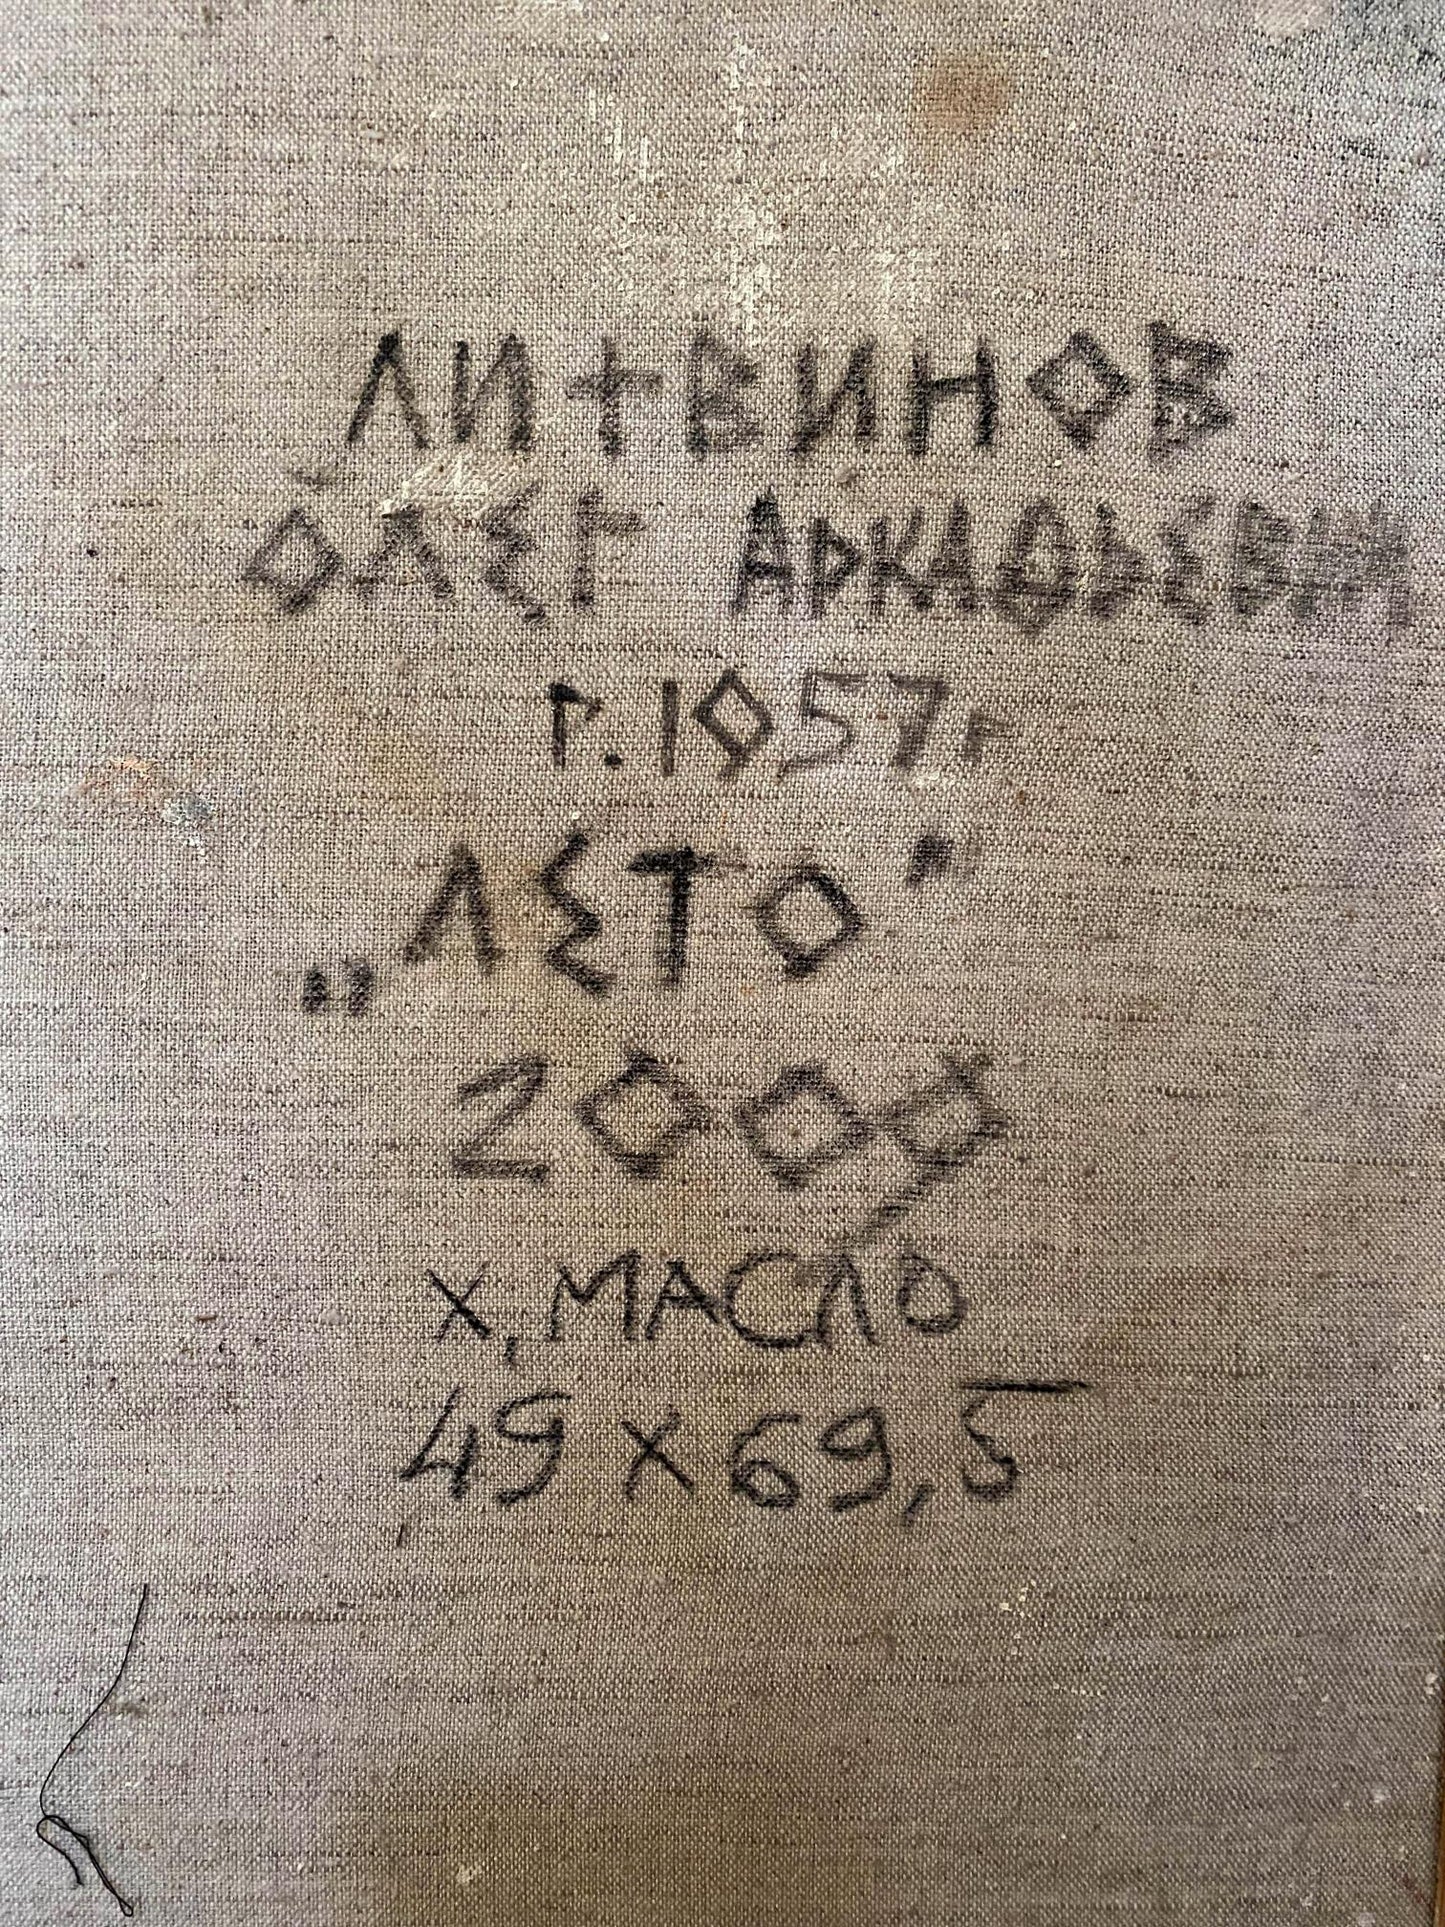 ЛИТВИНОВ
ОЛЕГ АРКАДЬЕВИЧ
Р. 1957г
„ЛЕТО"
2000
Х, МАСЛО
49 Х 69,5